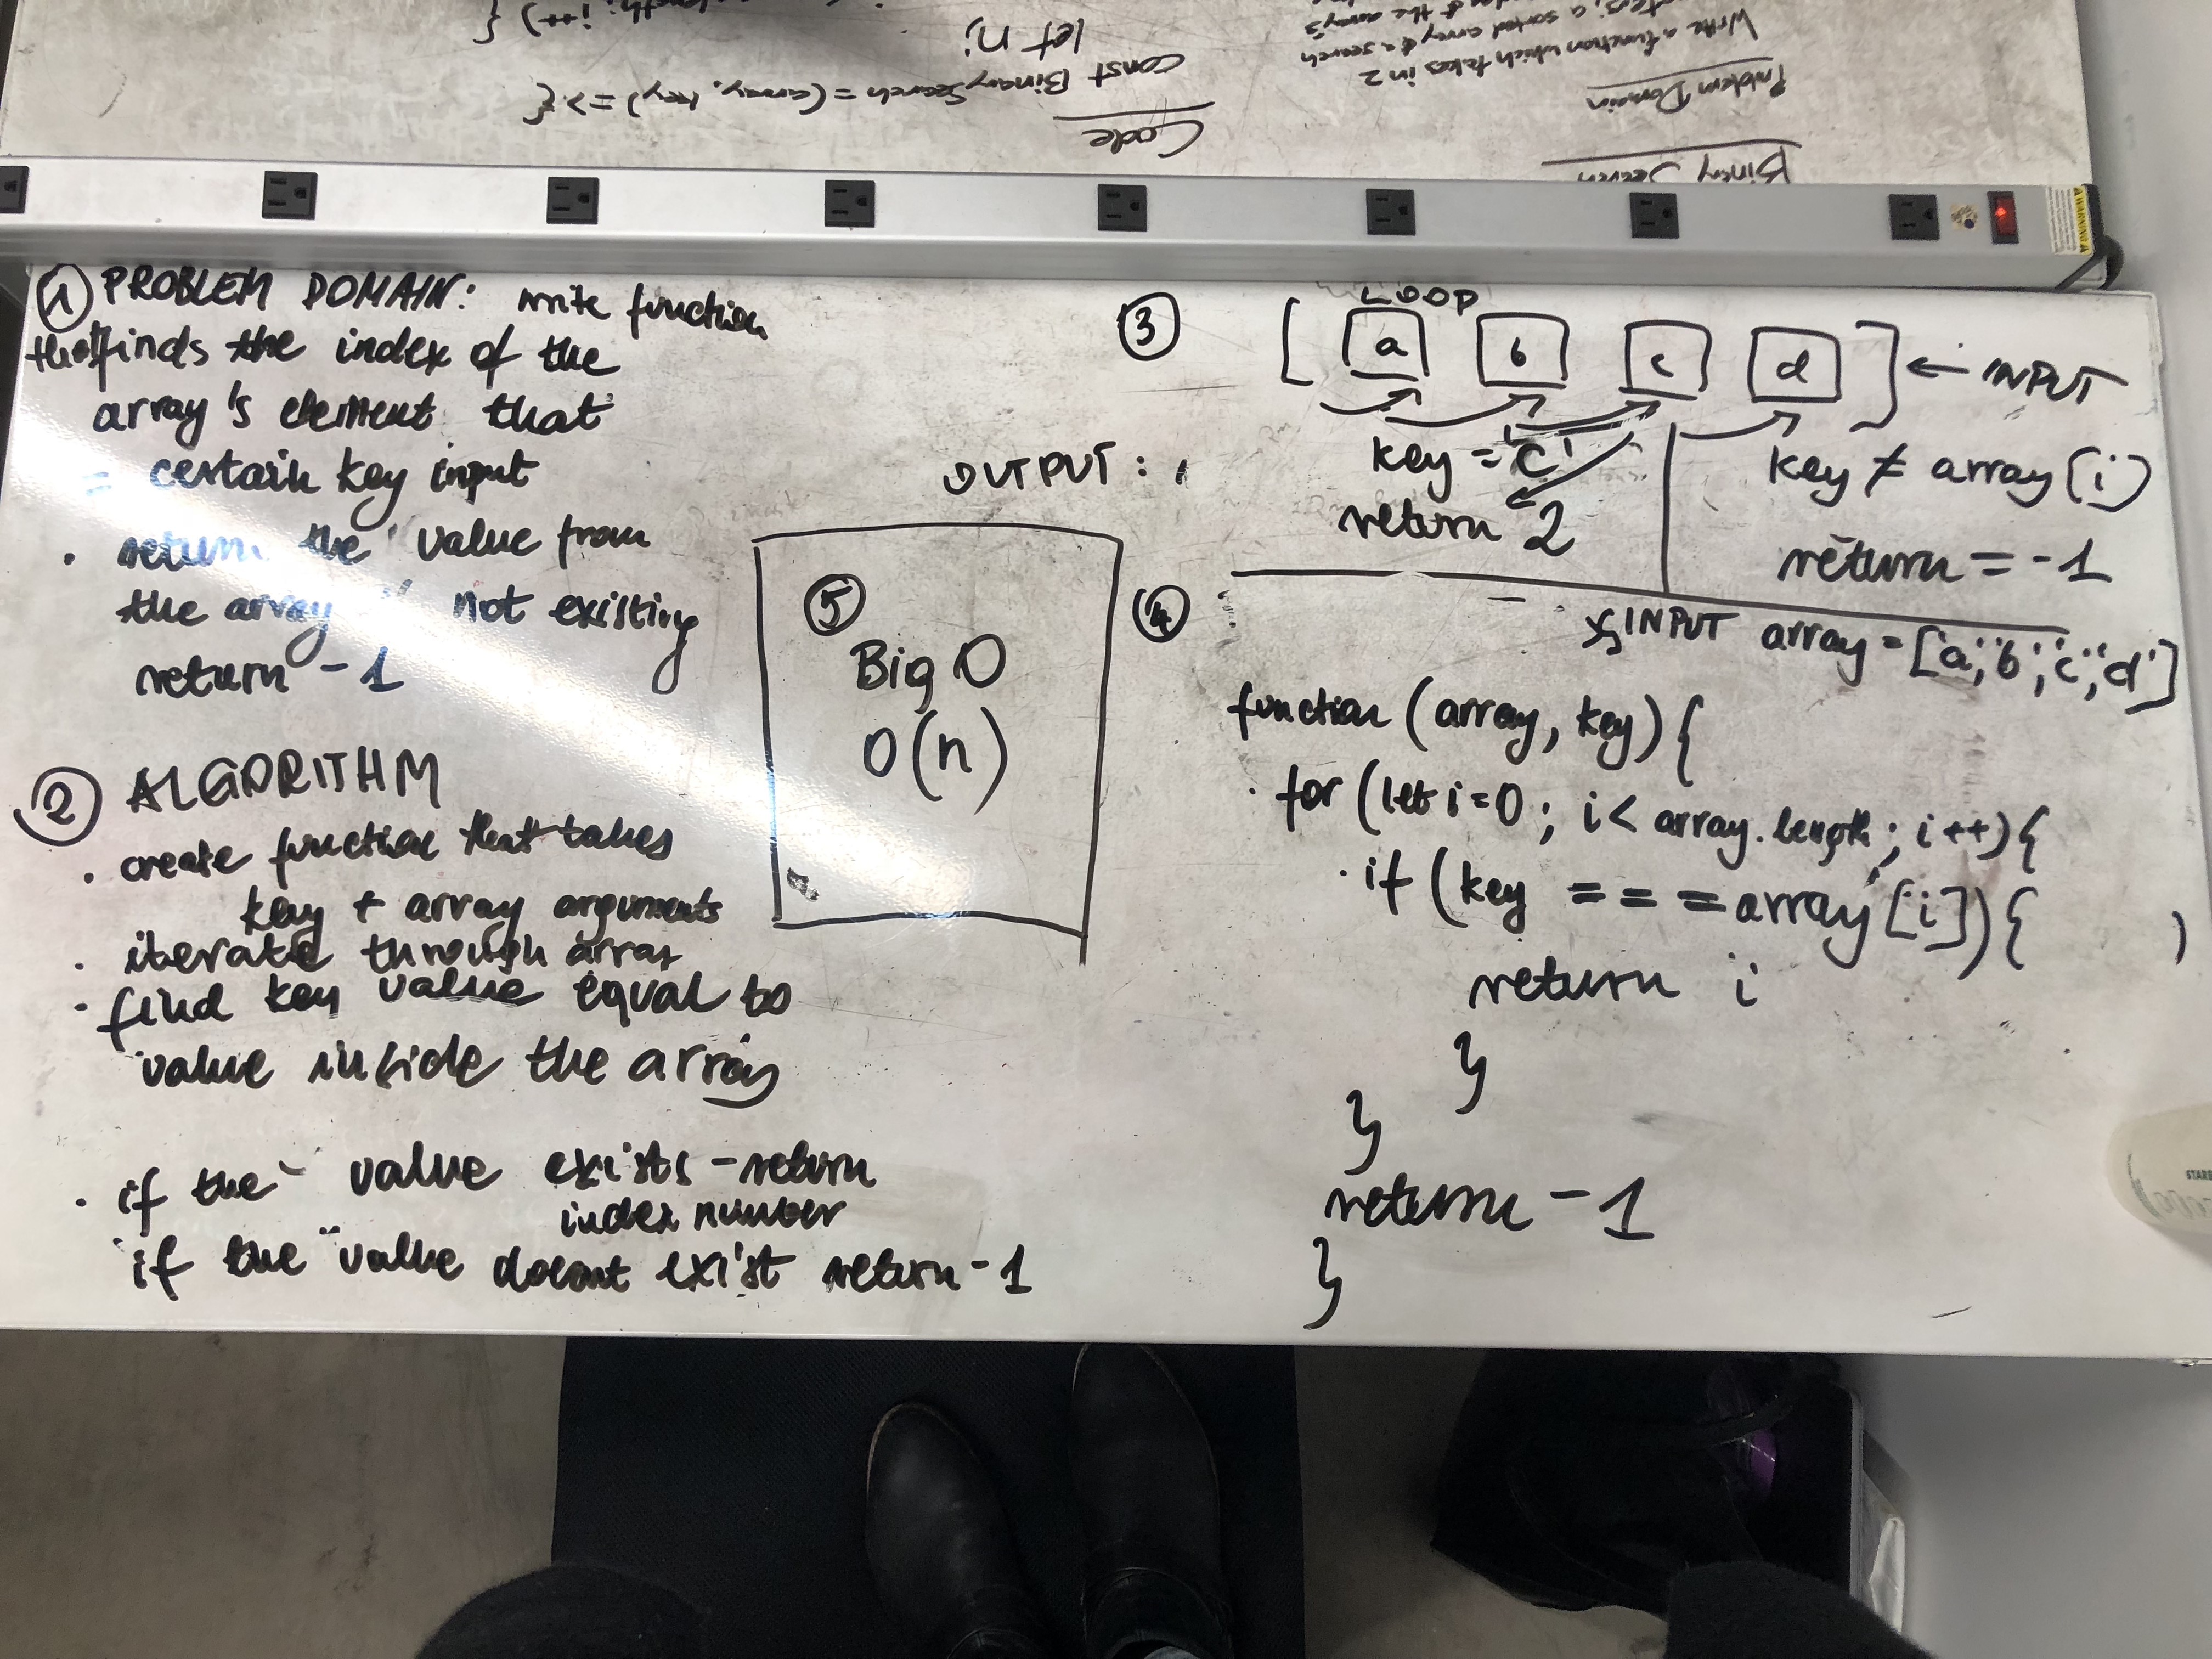 Binary Search
Problem Domain
Write a function which takes in 2
a sorted array & a search
of the array's
Code
const BinarySearch = (array, key) => {
let n;
i++) {
WARNING
① PROBLEM DOMAIN: write function
that finds the index of the
array's element that
= certain key input
. return the value from
the array not existing
return -1
② ALGORITHM
. create function that takes
key + array arguments
. iterate through array
. find key value equal to
value inside the array
. if the value exists - return
index number
if the value doesnt exist return -1
OUTPUT:
⑤
Big O
O(n)
③
LOOP
[ a b c d ] ← INPUT
key = 'c'
return 2
key ≠ array (i)
return = -1
④
INPUT array = ['a','b','c','d']
function (array, key) {
. for (let i=0; i < array.length; i++) {
. if (key === array[i]) {
return i
}
}
return -1
}